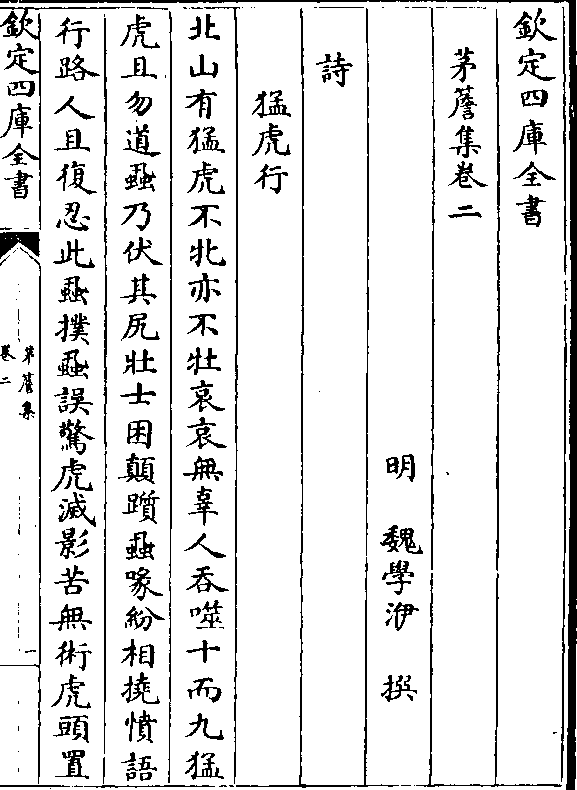 欽定四庫全書
茅簷集卷二
明 魏學洢 撰
詩
猛虎行
北山有猛虎不牝亦不牡哀哀無辜人吞噬十而九猛
虎且勿道蝨乃伏其尻壯士困顛躓蝨喙紛相撓憤語
行路人且復忍此蝨撲蝨誤驚虎滅影苦無術虎頭置
欽定四庫全書
茅簷集
卷二
一